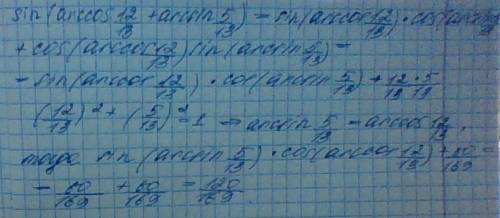 sin(arccos 12/13 + arcsin 5/13) = sin(arccos 12/13) · cos(arcsin 5/13)
+ cos(arccos 12/13) sin(arcsin 5/13) =
= sin(arccos 12/13) · cos(arcsin 5/13) + 12/13 · 5/13
(12/13)² + (5/13)² = 1 ⇒ arcsin 5/13 = arccos 12/13,
тогда sin(arcsin 5/13) · cos(arccos 12/13) + 60/169 =
= 60/169 + 60/169 = 120/169.